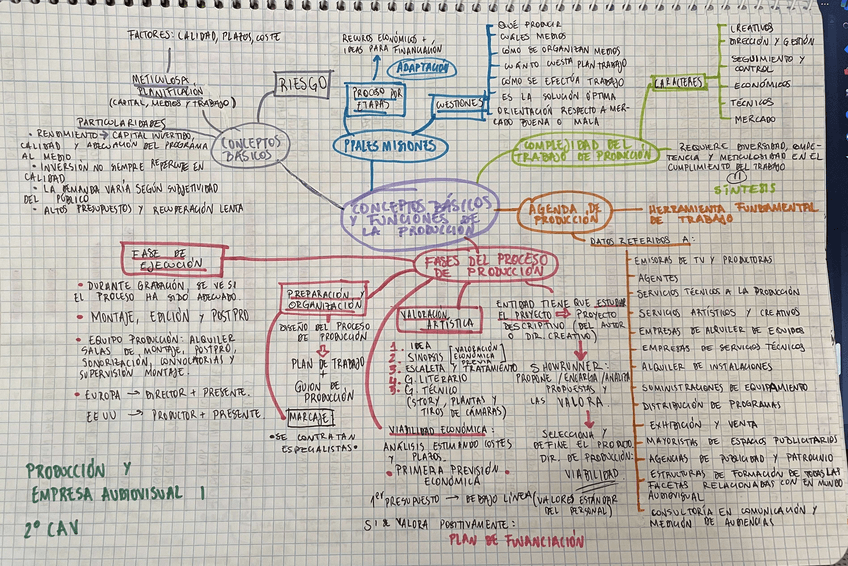 FACTORES: CALIDAD, PLAZOS, COSTE
METICULOSA
PLANIFICACIÓN
(CAPITAL, MEDIOS Y TRABAJO)
RIESGO
PARTICULARIDADES
• RENDIMIENTO → CAPITAL INVERTIDO,
CALIDAD Y ADECUACIÓN DEL PROGRAMA
AL MEDIO.
• INVERSIÓN NO SIEMPRE REPERCUTE EN
CALIDAD
• LA DEMANDA VARÍA SEGÚN SUBJETIVIDAD
DEL PÚBLICO
• ALTOS PRESUPUESTOS Y RECUPERACIÓN LENTA
CONCEPTOS
BÁSICOS
RECUROS ECONÓMICOS +
IDEAS PARA FINANCIACIÓN
ADAPTACIÓN
PROCESO POR
ETAPAS
CUESTIONES
PPALES MISIONES
QUÉ PRODUCIR
CUÁLES MEDIOS
CÓMO SE ORGANIZAN MEDIOS
CUÁNTO CUESTA PLAN TRABAJO
CÓMO SE EFECTÚA TRABAJO
ES LA SOLUCIÓN ÓPTIMA
ORIENTACIÓN RESPECTO A MER-
CADO BUENA O MALA
CARACTERES
CREATIVOS
DIRECCIÓN Y GESTIÓN
SEGUIMIENTO Y
CONTROL
ECONÓMICOS
TÉCNICOS
MERCADO
COMPLEJIDAD DEL
TRABAJO DE PRODUCCIÓN
REQUIERE DIVERSIDAD, COMPE-
TENCIA Y METICULOSIDAD EN EL
CUMPLIMIENTO DEL TRABAJO
SÍNTESIS
CONCEPTOS BÁSICOS
Y FUNCIONES DE
LA PRODUCCIÓN
AGENDA DE
PRODUCCIÓN
HERRAMIENTA FUNDAMENTAL
DE TRABAJO
DATOS REFERIDOS A:
EMISORAS DE TV Y PRODUTORAS
AGENTES
SERVICIOS TÉCNICOS A LA PRODUCCIÓN
SERVICIOS ARTÍSTICOS Y CREATIVOS
EMPRESAS DE ALQUILER DE EQUIPOS
EMPRESAS DE SERVICIOS TÉCNICOS
ALQUILER DE INSTALACIONES
SUMINISTRACIONES DE EQUIPAMIENTO
DISTRIBUCIÓN DE PROGRAMAS
EXHIBICIÓN Y VENTA
MAYORISTAS DE ESPACIOS PUBLICITARIOS
AGENCIAS DE PUBLICIDAD Y PATROCINIO
ESTRUCTURAS DE FORMACIÓN DE TODAS LAS
FACETAS RELACIONADAS CON EN MUNDO
AUDIOVISUAL
CONSULTORÍA EN COMUNICACIÓN Y
MEDICIÓN DE AUDIENCIAS
FASES DEL PROCESO
DE PRODUCCIÓN
FASE DE
EJECUCIÓN
• DURANTE GRABACIÓN, SE VE SI
EL PROCESO HA SIDO ADECUADO.
• MONTAJE, EDICIÓN Y POSTPRO
• EQUIPO PRODUCCIÓN: ALQUILER
SALAS DE MONTAJE, POSTPRO,
SONORIZACIÓN, CONVOCATORIAS Y
SUPERVISIÓN MONTAJE.
• EUROPA → DIRECTOR + PRESENTE.
EEUU → PRODUCTOR + PRESENTE
PREPARACIÓN Y
ORGANIZACIÓN
DISEÑO DEL PROCESO
DE PRODUCCIÓN
PLAN DE TRABAJO
+
GUION DE
PRODUCCIÓN
MARCAJE
• SE CONTRATAN
ESPECIALISTAS •
VALORACIÓN
ARTÍSTICA
1. IDEA
2. SINOPSIS
[VALORACIÓN
ECONÓMICA
PREVIA]
3. ESCALETA Y TRATAMIENTO
4. G. LITERARIO
5. G. TÉCNICO
(STORY, PLANTAS Y
TIROS DE CÁMARAS)
VIABILIDAD ECONÓMICA:
ANÁLISIS ESTIMANDO COSTES
Y PLAZOS.
• PRIMERA PREVISIÓN •
ECONÓMICA
1er PRESUPUESTO → DEBAJO LÍNEA (VALORES ESTÁNDAR
DEL PERSONAL)
SI SE VALORA POSITIVAMENTE:
PLAN DE FINANCIACIÓN
ENTIDAD TIENE QUE ESTUDIAR
EL PROYECTO ⇒ PROYECTO
DESCRIPTIVO (DEL AUTOR
O DIR. CREATIVO)
SHOWRUNNER:
PROPONE / ENCARGA / ANALIZA
PROPUESTAS Y
LAS VALORA
SELECCIONA Y
DEFINE EL PRODUCTO
DIR. DE PRODUCCIÓN:
VIABILIDAD
PRODUCCIÓN Y
EMPRESA AUDIOVISUAL I
2º CAV